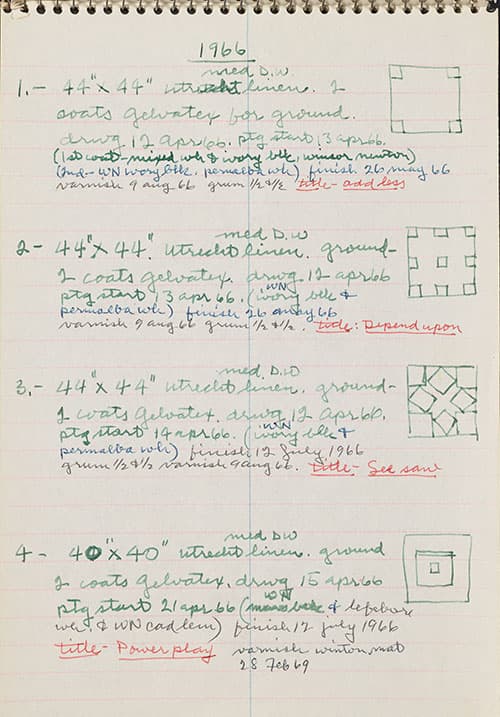 1966
med D.W
1.- 44" X 44" utrecht linen. 2
coats gelvatex for ground.
drwg 12 apr 66. ptg start 13 apr 66.
(1st coat-mixed wh & ivory blk, winsor newton)
(2nd- WN ivory blk. permalba wh) finish 26 may 66
varnish 9 aug 66 grum 1/2 & 1/2 title- add less
med D.W
2- 44" X 44". utrecht linen. ground-
2 coats gelvatex. drwg 12 apr 66
WN
ptg start 13 apr 66. (ivory blk &
permalba wh) finish 26 may 66
varnish 9 aug 66 grum 1/2 & 1/2. title: Depend upon
med D.W
3.- 44" X 44" utrecht linen. ground-
2 coats gelvatex. drwg 12 apr 66.
WN
ptg start 14 apr 66. (ivory blk &
permalba wh) finish 12 July 1966
grum 1/2 & 1/2 varnish 9 aug 66. title- See saw
med D.W
4- 40" X 40" utrecht linen. ground
2 coats gelvatex. drwg 15 apr 66
WN
ptg start 21 apr 66 ( blk & lefebvre
wh. & WN cad lem) finish 12 july 1966
title- Power play varnish winton mat
28 Feb 69